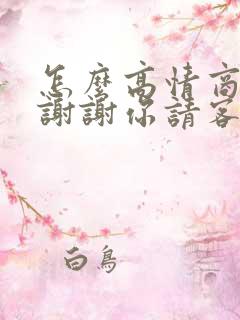 怎麼高情商
謝謝你請客
白鳥